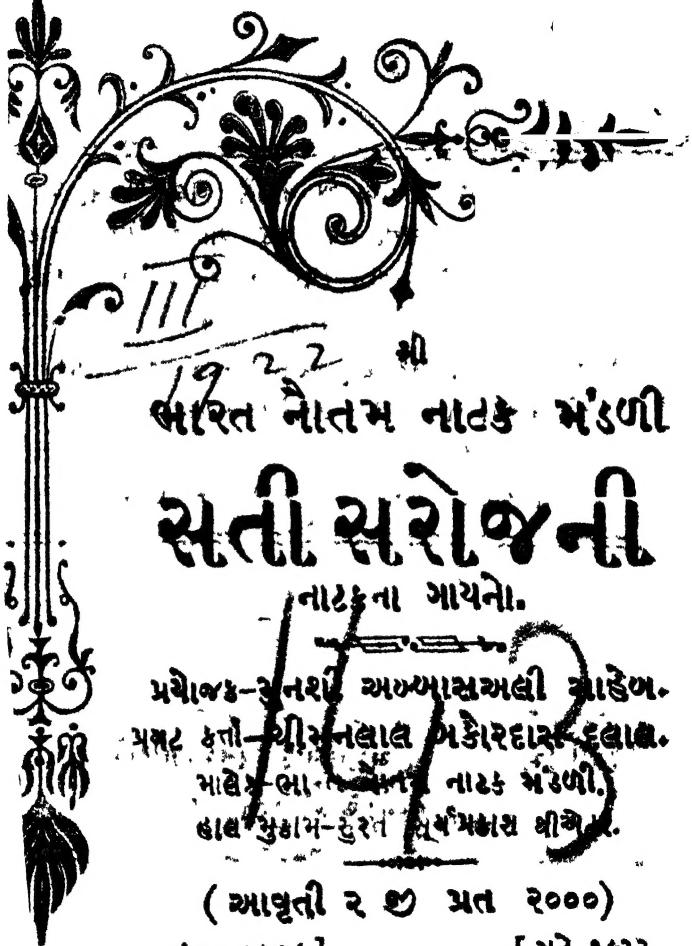 III
1922
શ્રી
ભારત નૌતમ નાટક મંડળી
સતી સરોજની
નાટકના ગાયનો.
143
પ્રયોજક-મુનશી અબ્બાસઅલી સાહેબ.
પ્રગટ કર્તા-ચીમનલાલ દલાલ.
માલેક-ભારત નૌતમ નાટક મંડળી.
હાલ મુકામ-સુરત સૂર્યપ્રકાશ થીએટર.
(આવૃતી ૨ જી પ્રત ૨૦૦૦)